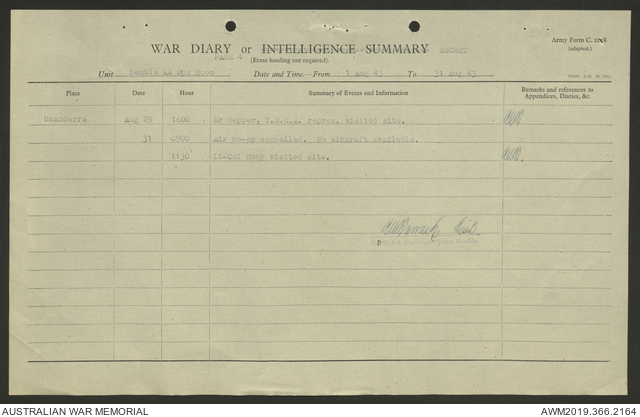 Army Form C. 2118
(adapted.)
WAR DIARY or INTELLIGENCE SUMMARY SECRET
PAGE 4
(Erase heading not required).
Unit Kembla AA Ops Room Date and Time.—From 1 Aug 43 To 31 Aug 43
Place Date Hour Summary of Events and Information Remarks and references to Appendices, Diaries, &c.
Unanderra Aug 29 1600 Mr Happer, Y.M.C.A. repres. visited site.
31 0900 Air co-op cancelled. No aircraft available.
1130 Lt-Col Mooy visited site.
Lieut.
AUSTRALIAN WAR MEMORIAL AWM2019.366.2164